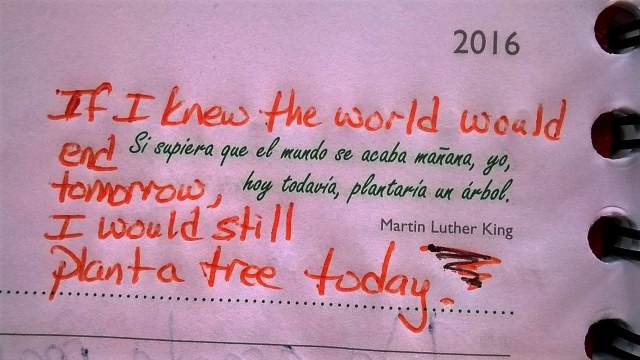 2016
If I knew the world would
end
Si supiera que el mundo se acaba mañana, yo,
tomorrow,
hoy todavía, plantaría un árbol.
I would still
Martin Luther King
plant a tree today.